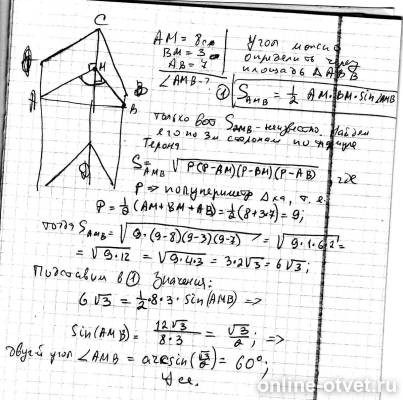 C
M
A
B
AM = 8см
BM = 3
AB = 7
∠AMB - ?
угол можно
определить через
площадь Δ
① S_AMB = 1/2 AM·BM·Sin∠AMB
только вот S_AMB - неизвестно. Найдем
его по 3м сторонам по
Герона
S_AMB = √(P(P-AM)(P-BM)(P-AB)), где
P → полупериметр Δка, т.е.
P = 1/2 (AM+BM+AB) = 1/2 (8+3+7) = 9;
тогда S_AMB = √(9·(9-8)(9-3)(9-7)) = √(9·1·6·2) =
= √(9·12) = √(9·4·3) = 3·2√3 = 6√3;
Подставим в ① значения:
6√3 = 1/2·8·3·sin(AMB) =>
Sin(AMB) = 12√3/(8·3) = √3/2; =>
двугр угол ∠AMB = arcsin(√3/2) = 60°;
Все.
online-otvet.ru